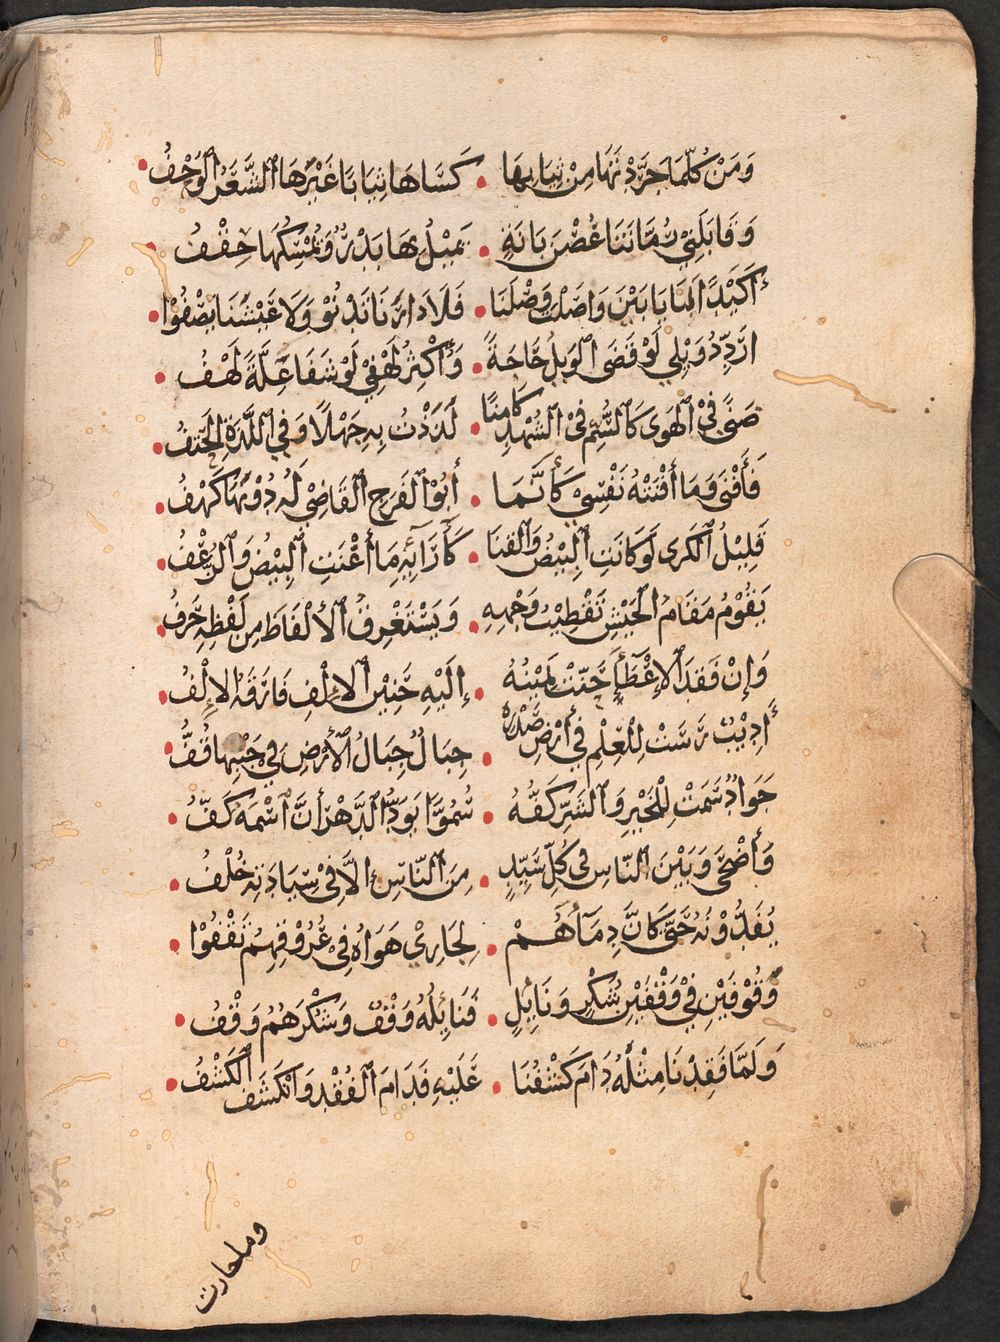 وَمَنْ كُلَّمَا جَرَّدْتَهَا مِنْ ثِيَابِهَا . كَسَاهَا ثِيَابًا غَيْرَهَا الشَّعَرُ الوَحْفُ
وَقَابَلَنِي رُمَّانَتَا غُصْنِ بَانَةٍ . يَمِيْلُ بِهَا بَدْرٌ وَيُمْسِكُهَا حِقْفُ
أَكَيْدًا لَنَا يَا بَيْنُ وَاصَلْتَ وَصْلَنَا . فَلَا دَارُنَا تَدْنُوْ وَلَا عَيْشُنَا يَصْفُوْا
ارَدِّدُ وَيْلِي لَوْ قَضَى الوَيْلُ حَاجَةً . وَأُكْثِرُ لَهْفِيْ لَوْ شَفَا غُلَّةً لَهْفُ
ضَنًى فِيْ الْهَوَى كَالسُّمِّ فِيْ الشُّهْدِ كَامِنًا . لَذِذْتُ بِهِ جَهْلًا وَفِي اللَّذَّةِ الْحَتْفُ
فَأَفْنَى وَمَا أَفْنَتْهُ نَفْسِيْ كَأَنَّمَا . أَبُوْ الْفَرَجِ الْقَاضِيْ لَهُ دُوْنَهَا كَهْفُ
قَلِيْلُ الْكَرَى لَوْ كَانَتِ الْبِيْضُ وَالْقَنَا . كَآرَائِهِ مَا أَغْنَتِ الْبِيْضُ وَالزَّغْفُ
يَقُوْمُ مَقَامَ الْجَيْشِ تَقْطِيْبُ وَجْهِهِ . وَيَسْتَغْرِقُ الْأَلْفَاظَ مِنْ لَفْظِهِ حَرْفُ
وَإِنْ فَقَدَ الْإِعْطَآءَ حَنَّتْ يَمِيْنُهُ . إِلَيْهِ حَنِيْنَ الْإِلْفِ فَارَقَهُ الْإِلْفُ
أَدِيْبٌ رَسَتْ لِلْعِلْمِ فِي أَرْضِ صَدْرِهِ . جِبَالٌ جِبَالُ الْأَرْضِ فِي جَنْبِهَا قُفُّ
جَوَادٌ سَمَتْ لِلْخَيْرِ وَالشَّرِّ كَفُّهُ . سُمُوًّا يَوَدُّ الدَّهْرُ أَنَّ اسْمَهُ كَفُّ
وَأَضْحَى وَبَيْنَ النَّاسِ فِي كُلِّ سَيِّدٍ . مِنَ النَّاسِ إِلَّا فِيْ سِيَادَتِهِ خُلْفُ
يُفَدُّوْنَهُ حَتَّى كَانَّ دِمَآءَهُمْ . لِجَارِيْ هَوَاهُ فِيْ عُرُوْقِهِمْ تَقْفُوْا
وُقُوْفَيْنِ فِيْ وَقْفَيْنِ شُكْرٍ وَنَائِلٍ . فَنَائِلُهُ وَقْفٌ وَشُكْرُهُمْ وَقْفُ
وَلَمَّا فَقِدْنَا مِثْلَهُ دَامَ كَشْفُنَا . عَلَيْهِ فَدَامَ الْفَقْدُ وَانْكَشَفَ الْكَشْفُ
وما حارت